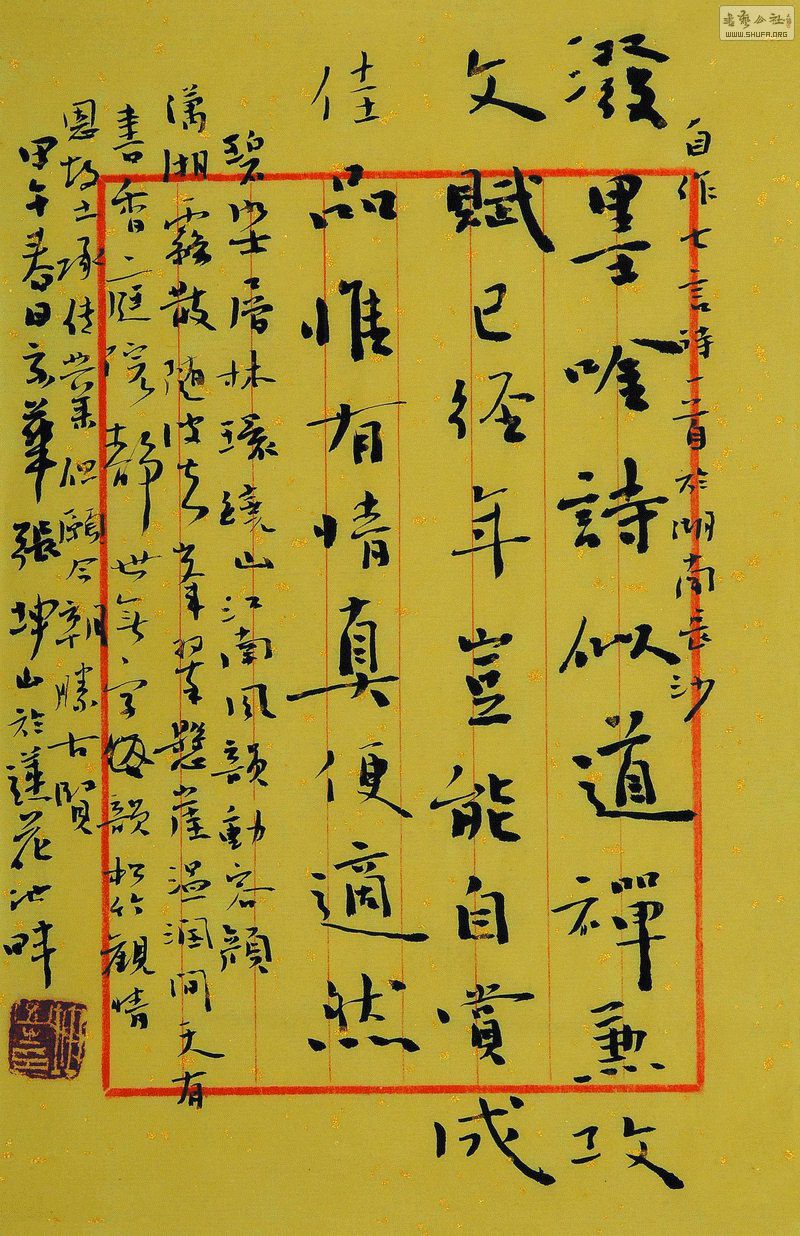 潑墨吟詩似道禪兼攻
文賦已經年豈能自賞成
佳品惟有情真便適然
自作七言詩一首於湖南長沙
碧坐層林環繞山江南風韻動容顏
瀟湖霧散随波去峯翠懸崖溫潤間又有
書香庭院靜世無字韻松竹觀情
恩故土承傳業但願今朝勝古賢
甲午春日京華張坤山於蓮花池畔
書藝公社
WWW.SHUFA.ORG